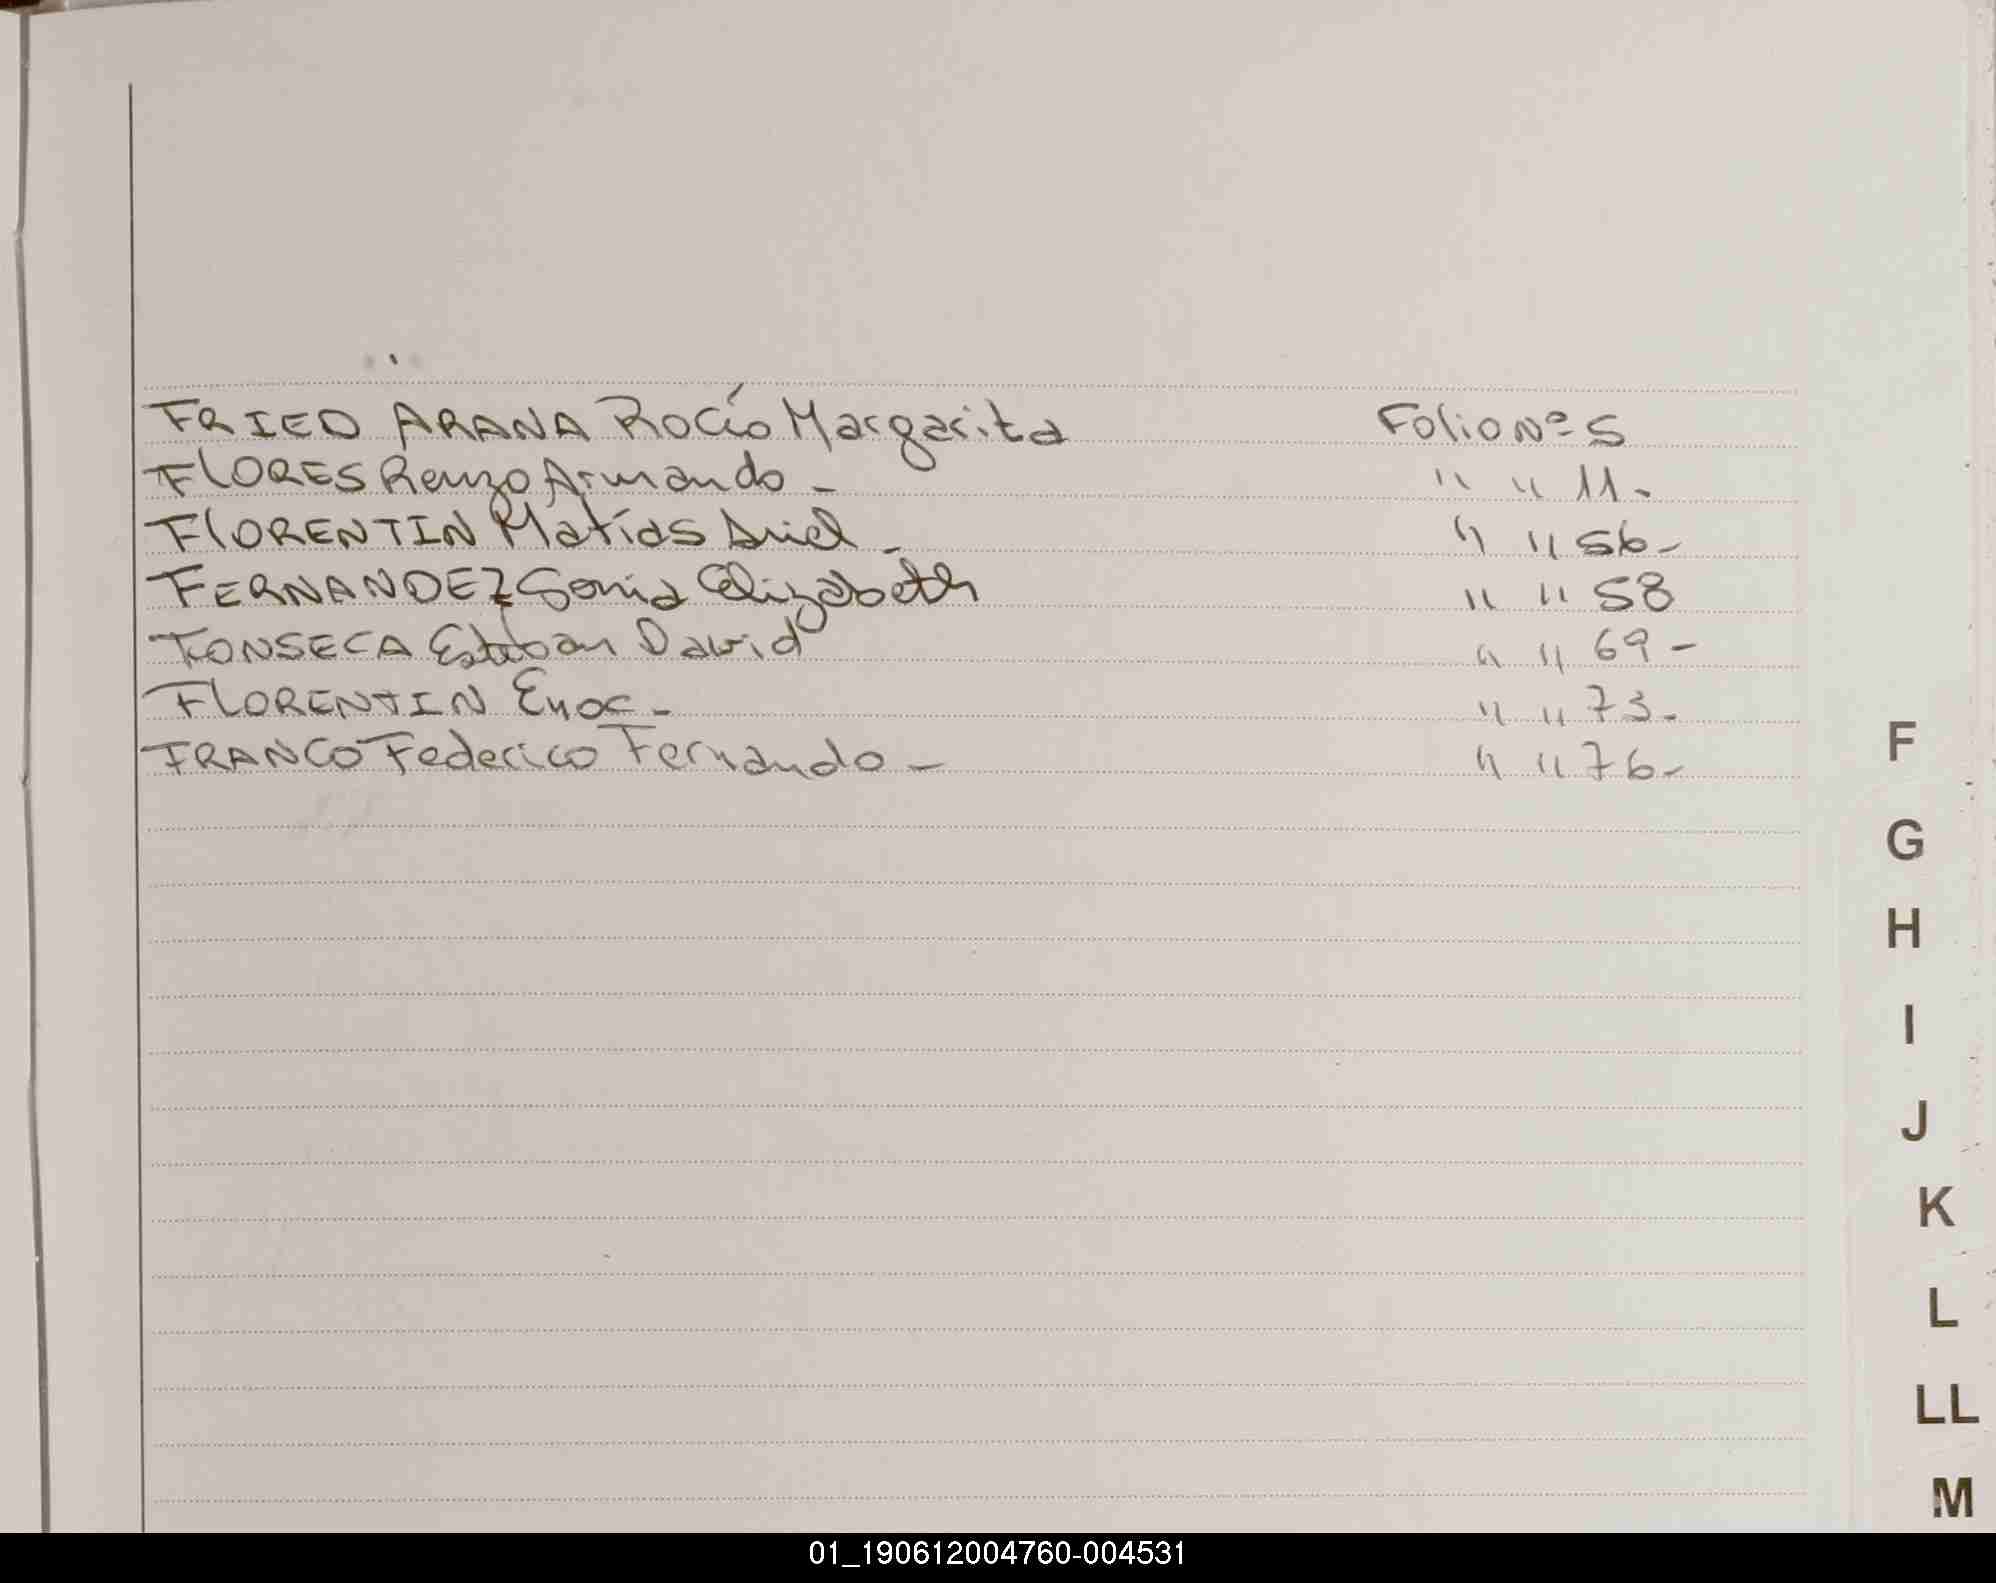 FRIED ARANA Rocío Margarita Folio Nº 5
FLORES Renzo Armando - " " 11.
FLORENTIN Matías Ariel - " " 56-
FERNANDEZ Sonia Elizabeth " " 58
FONSECA Esteban David " " 69-
FLORENTIN Enoc - " " 73-
FRANCO Federico Fernando - " " 76-
F
G
H
I
J
K
L
LL
M
01_190612004760-004531